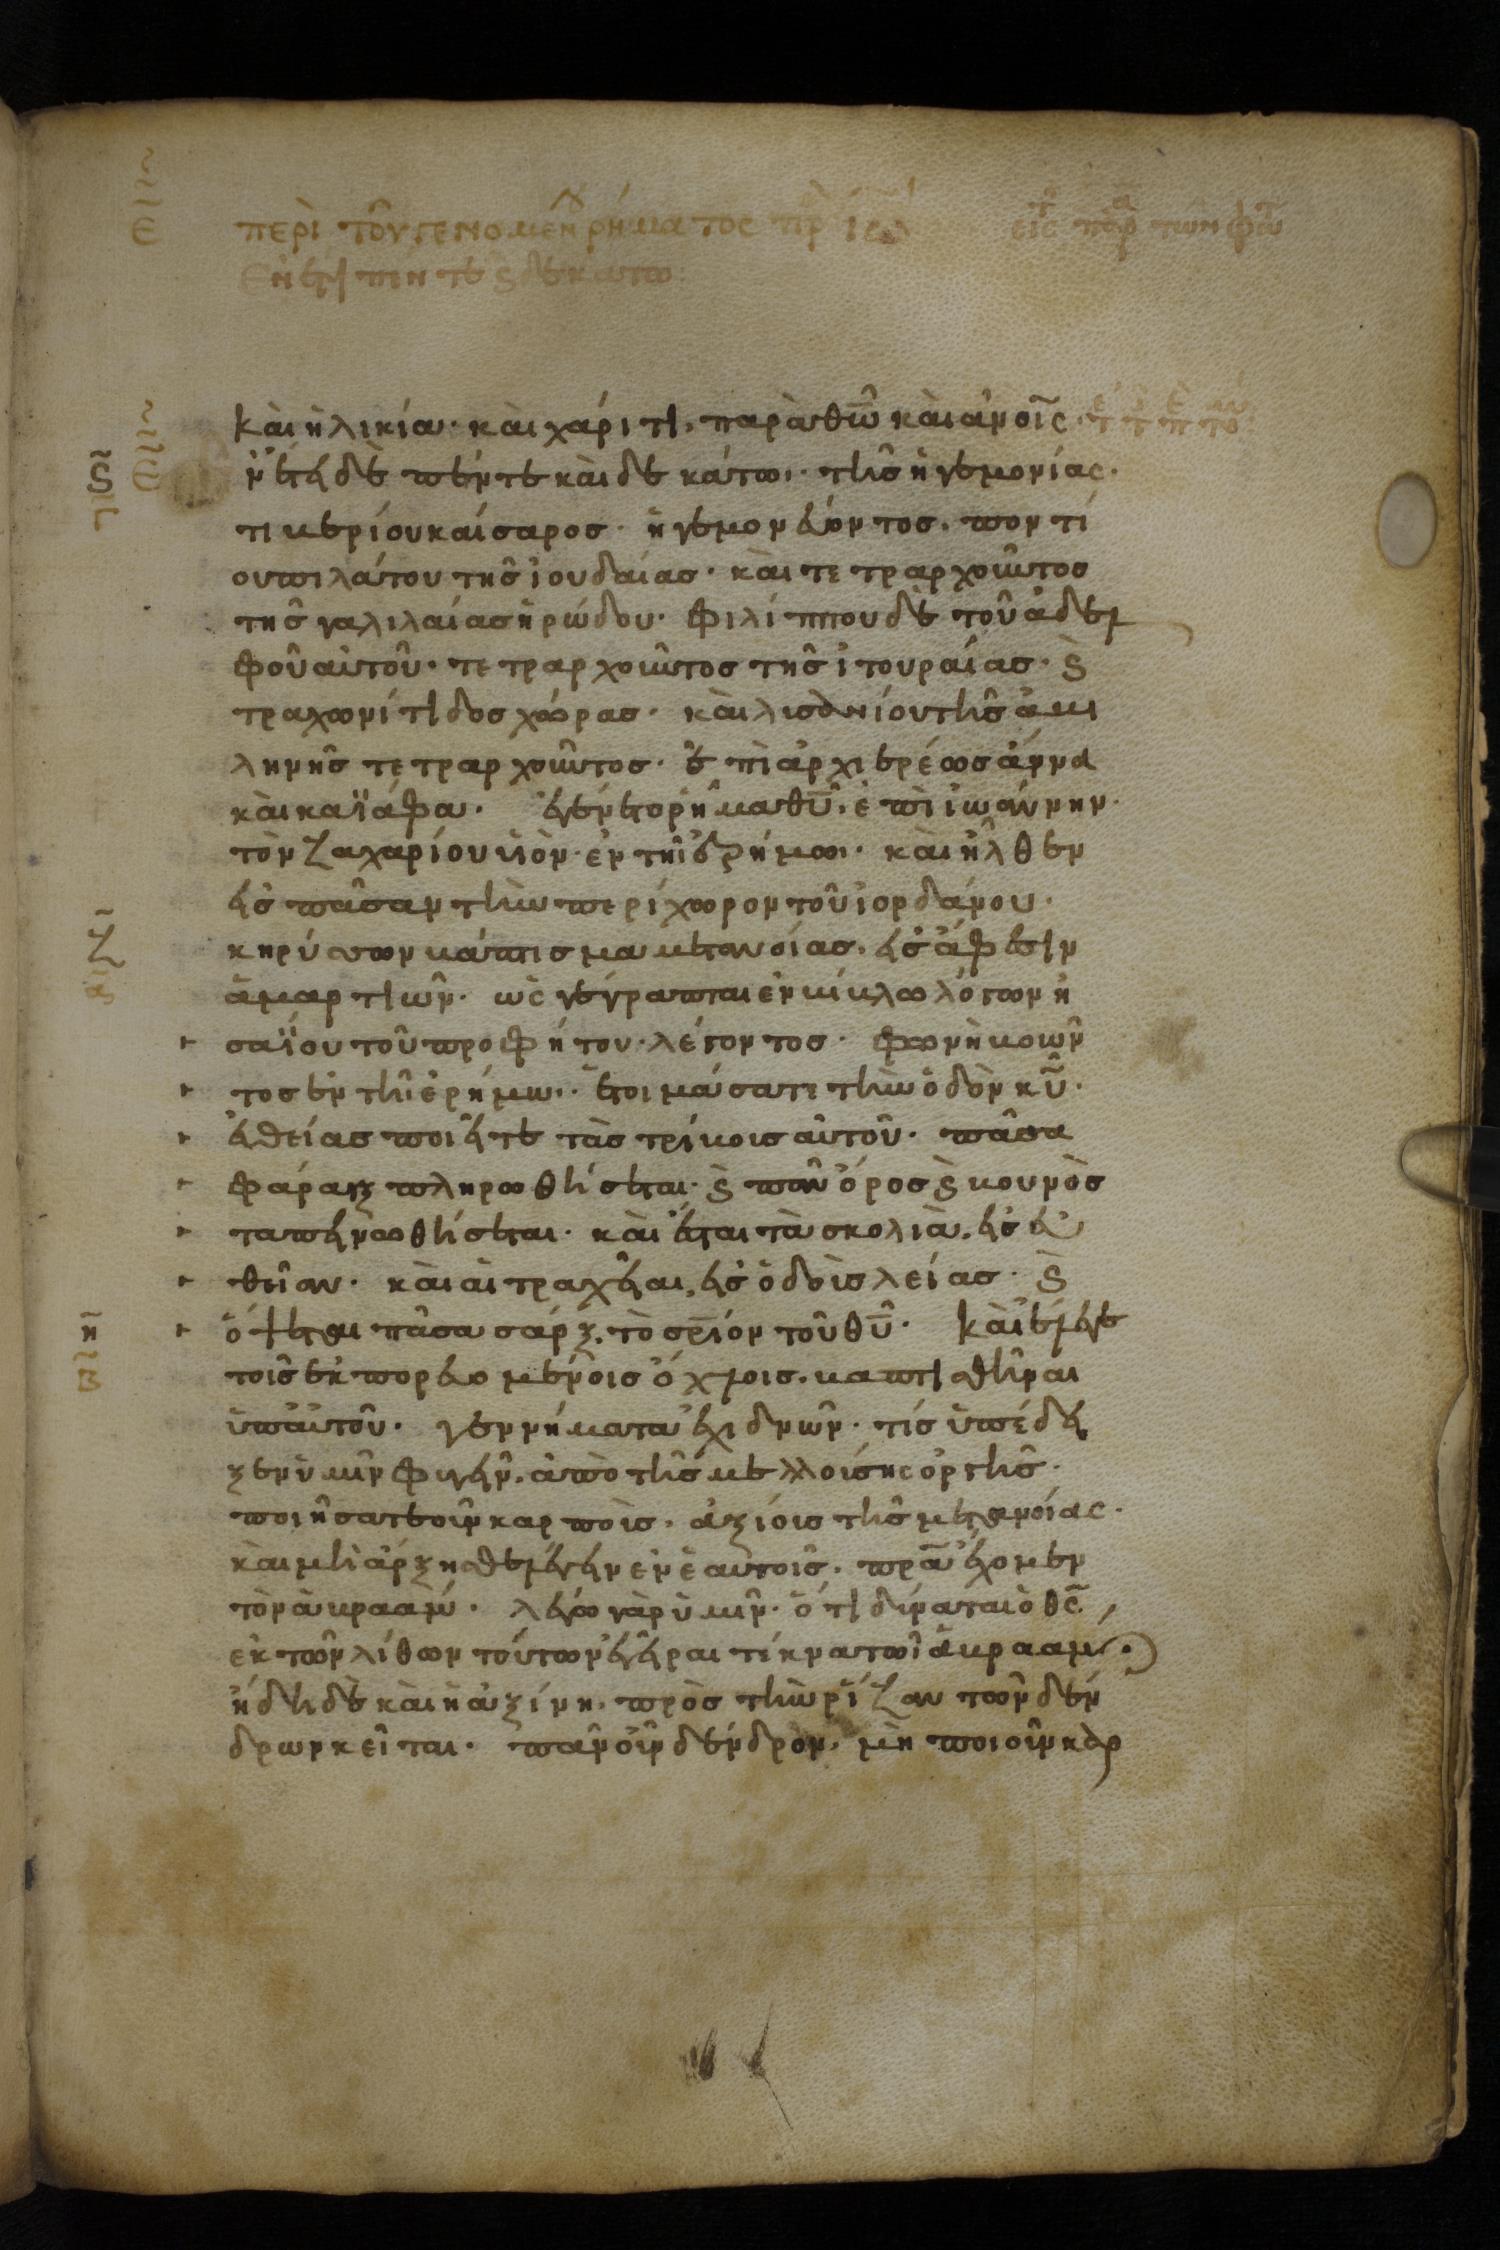 ε περὶ τοῦ γενομένου ῥήματος πρ ιω εἰς τ παρ τῶν φωτ
Ἐν ἔτει πεντε ϗ δεκάτω
Καὶ ἡλικία· καὶ χάριτι, παρὰ θω καὶ ανοις·
ν ἔτει δὲ πεντεκαιδεκάτωι· τῆς ἡγεμονίας·
τιβερίου καίσαρος· ἡγεμονεύοντος, ποντί
ου πιλάτου τῆς ἰουδαίας· καὶ τετραρχοῦντος
τῆς γαλιλαίας ἡρώδου· φιλίππου δὲ τοῦ ἀδελ
φοῦ αὐτοῦ· τετραρχοῦντος τῆς ἰτουραίας· ϗ
τραχωνίτιδος χώρας· καὶ λισανίου τῆς ἀβι
ληνῆς τετραρχοῦντος· ἐπὶ ἀρχιερέως ἄννα
καὶ καϊάφα· ἐγένετο ῥῆμα θυ, ἐπὶ ἰωάννην·
τὸν ζαχαρίου υἱὸν· ἐν τῆι ἐρήμωι· καὶ ἦλθεν
εἰς πᾶσαν τὴν περίχωρον τοῦ ἰορδάνου·
κηρύσσων βάπτισμα μετανοίας, εἰς ἄφεσιν
ἁμαρτιῶν· ὡς γέγραπται ἐν βίβλω λόγων ἡ
σαΐου τοῦ προφήτου· λέγοντος· φωνὴ βοῶν
τος ἐν τῆ ἐρήμω·· ἑτοιμάσατε τὴν ὁδὸν κυ·
εὐθείας ποιεῖτε τὰς τρίβους αὐτοῦ· πᾶσα
φάραγξ πληρωθήσεται· ϗ πᾶν ὄρος ϗ βουνὸς
ταπεινωθήσεται· καὶ ἔσται τὰ σκολιὰ, εἰς εὐ
θεῖαν· καὶ αἱ τραχεῖαι, εἰς ὁδοὺς λείας· ϗ
ὄψεται πᾶσα σάρξ, τὸ σριον τοῦ θυ· Καὶ ἔλεγε
τοῖς ἐκπορευομένοις ὄχλοις, βαπτισθῆναι
ὑπ αὐτοῦ· γεννήματα ἐχιδνῶν· τίς ὑπέδει
ξεν ὑμῖν φυγεῖν, ἀπὸ τῆς μελλούσης ὀργῆς·
ποιήσατε οὖν καρποὺς, ἀξίους τῆς μετανοίας·
καὶ μὴ ἄρξησθε λέγειν ἐν ἑαυτοῖς, πρα ἔχομεν
τὸν ἀβραάμ· λέγω γὰρ ὑμῖν· ὅτι δύναται ὁ θς,
ἐκ τῶν λίθων τούτων ἐγεῖραι τέκνα τῶ ἀβραάμ·
ἤδη δὲ καὶ ἡ ἀξίνη, πρὸς τὴν ῥίζαν τῶν δέν
δρων κεῖται· πᾶν οὖν δένδρον, μὴ ποιοῦν καρ